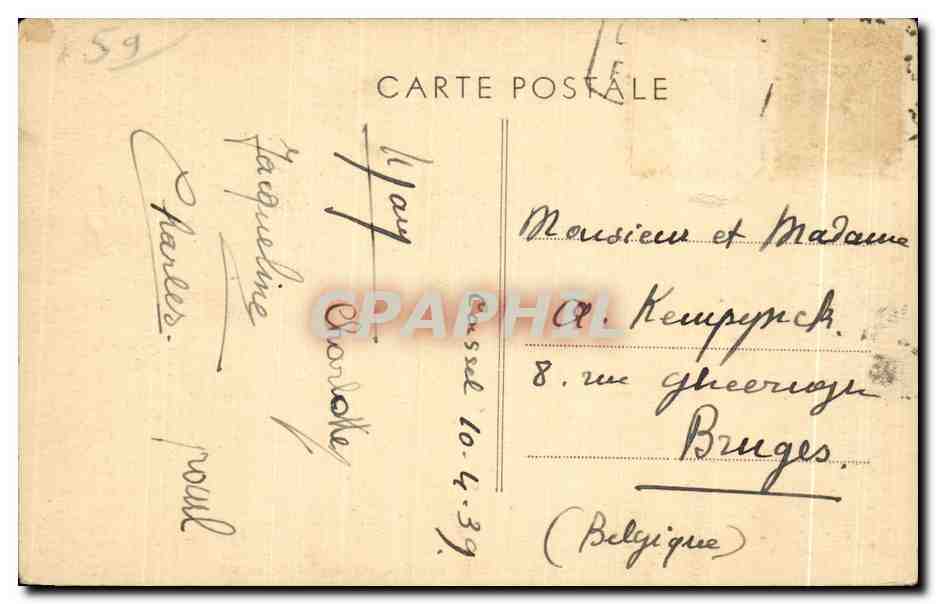 59
CARTE POSTALE
Cassel 10.4.39.
Mary
Charlotte
Jacqueline
Charles.
Monsieur et Madame
A. Kempynck.
8. rue
Bruges.
(Belgique)
CPAPHIL